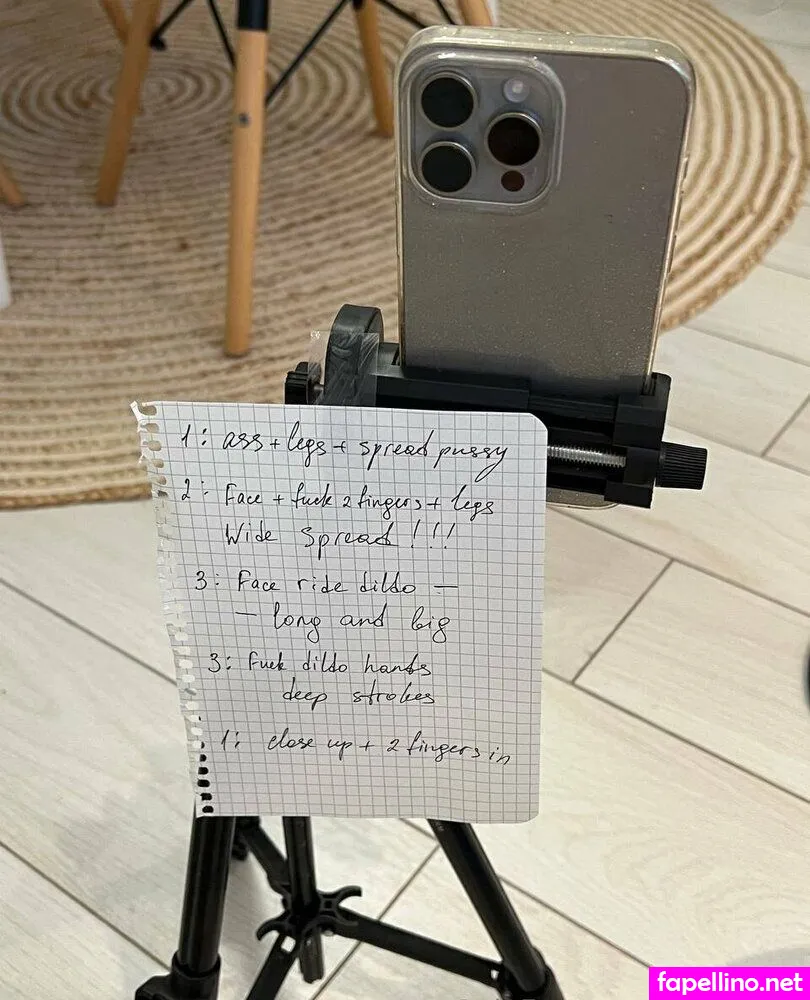 1: ass + legs + spread pussy
2: Face + fuck 2 fingers + legs
Wide spread!!!
3: Face ride dildo —
— long and big
3: Fuck dildo hands
deep strokes
1: close up + 2 fingers in
fapellino.net